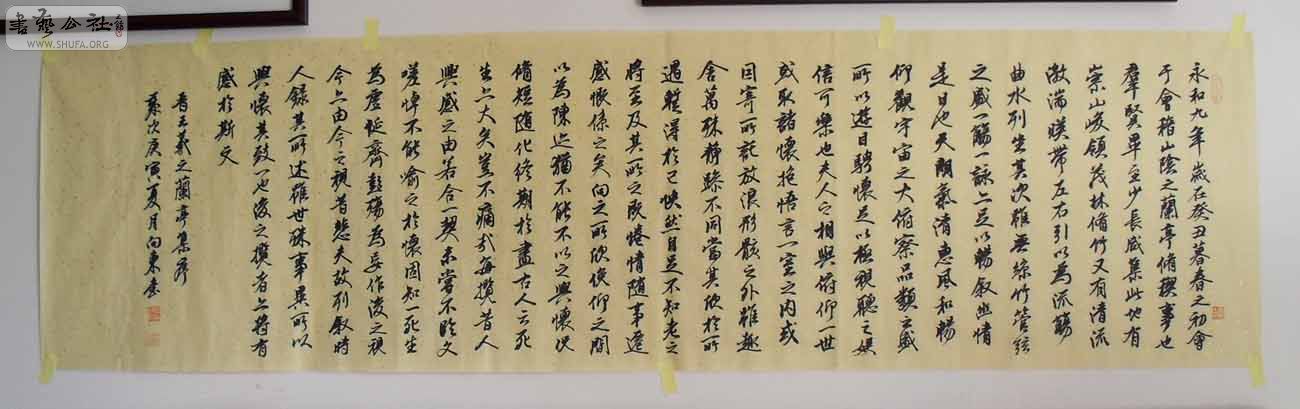 書藝公社
WWW.SHUFA.ORG
永和九年歲在癸丑暮春之初會
于會稽山陰之蘭亭脩稧事也
羣賢畢至少長咸集此地有
崇山峻領茂林脩竹又有清流
激湍暎帶左右引以為流觴
曲水列坐其次雖無絲竹管弦
之盛一觴一詠亦足以暢敘幽情
是日也天朗氣清惠風和暢
仰觀宇宙之大俯察品類之盛
所以遊目騁懷足以極視聽之娛
信可樂也夫人之相與俯仰一世
或取諸懷抱悟言一室之內或
因寄所託放浪形骸之外雖趣
舍萬殊靜躁不同當其欣於所
遇蹔得於己快然自足不知老之
將至及其所之既惓情隨事遷
感慨係之矣向之所欣俛仰之間
以為陳迹猶不能不以之興懷況
脩短隨化終期於盡古人云死
生亦大矣豈不痛哉每攬昔人
興感之由若合一契未嘗不臨文
嗟悼不能喻之於懷固知一死生
為虛誕齊彭殤為妄作後之視
今亦由今之視昔悲夫故列敘時
人錄其所述雖世殊事異所以
興懷其致一也後之攬者亦將有
感於斯文
晉王羲之蘭亭集序
歲次庚寅夏月向東書